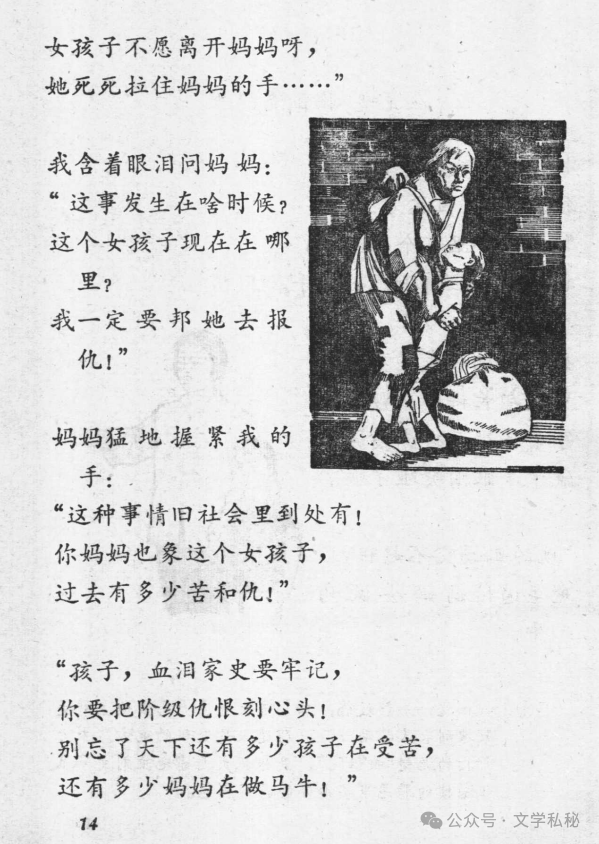 女孩子不愿离开妈妈呀，
她死死拉住妈妈的手……”
我含着眼泪问妈妈：
“这事发生在啥时候？
这个女孩子现在在哪
里？
我一定要邦她去报
仇！”
妈妈猛地握紧我的
手：
“这种事情旧社会里到处有！
你妈妈也象这个女孩子，
过去有多少苦和仇！”
“孩子，血泪家史要牢记，
你要把阶级仇恨刻心头！
别忘了天下还有多少孩子在受苦，
还有多少妈妈在做马牛！”
14
公众号·文学私秘